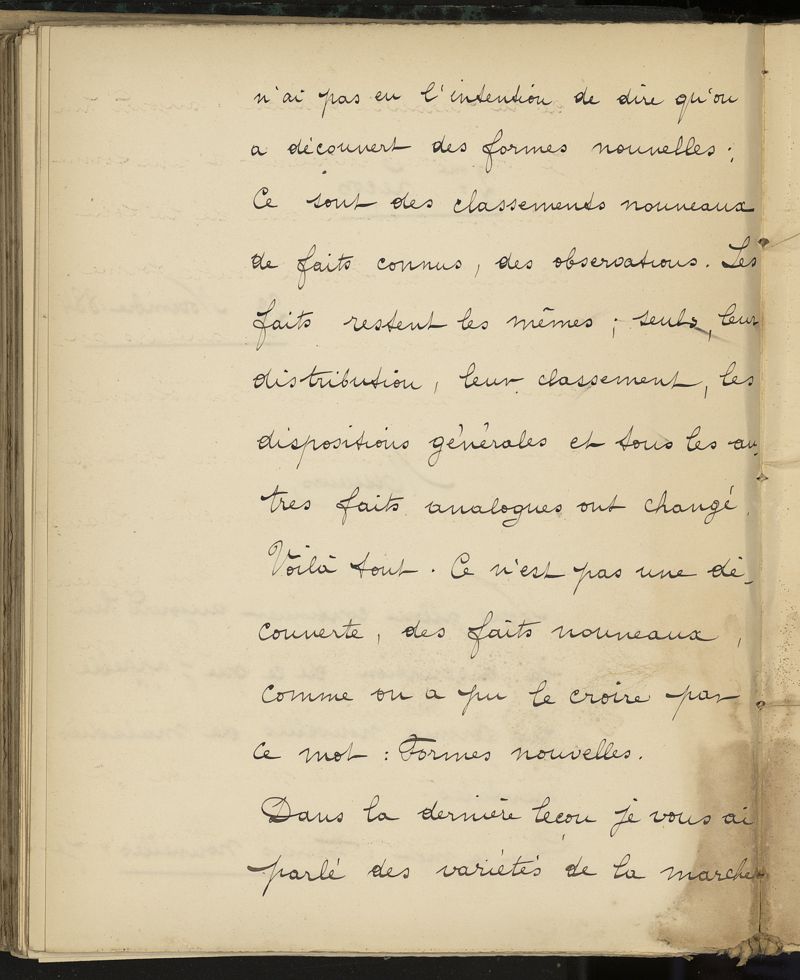 n'ai pas eu l'intention de dire qu'on
a découvert des formes nouvelles ;
Ce sont des classements nouveaux
de faits connus, des observations. Les
faits restent les mêmes ; seuls, leur
distribution, leur classement, les
dispositions générales et tous les au-
tres faits analogues ont changé.
Voilà tout. Ce n'est pas une dé-
couverte, des faits nouveaux,
comme on a pu le croire par
ce mot : Formes nouvelles.
Dans la dernière leçon je vous ai
parlé des variétés de la marche